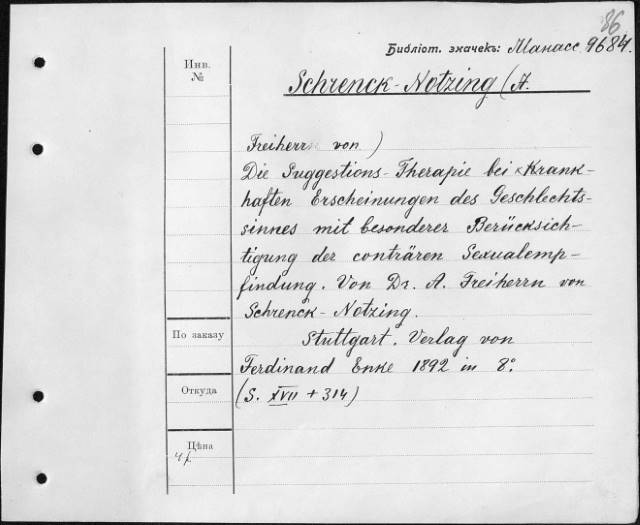 86
Библіот. значекъ: Манасс. 9684.
Инв.
№
Schrenck-Notzing (A.
Freiherrn von)
Die Suggestions-Therapie bei krank-
haften Erscheinungen des Geschlechts-
sinnes mit besonderer Berücksich-
tigung der conträren Sexualemp-
findung. Von Dr. A. Freiherrn von
Schrenck-Notzing.
По заказу
Stuttgart. Verlag von
Ferdinand Enke 1892 in 8°.
Откуда
(S. XVII + 314)
Цѣна